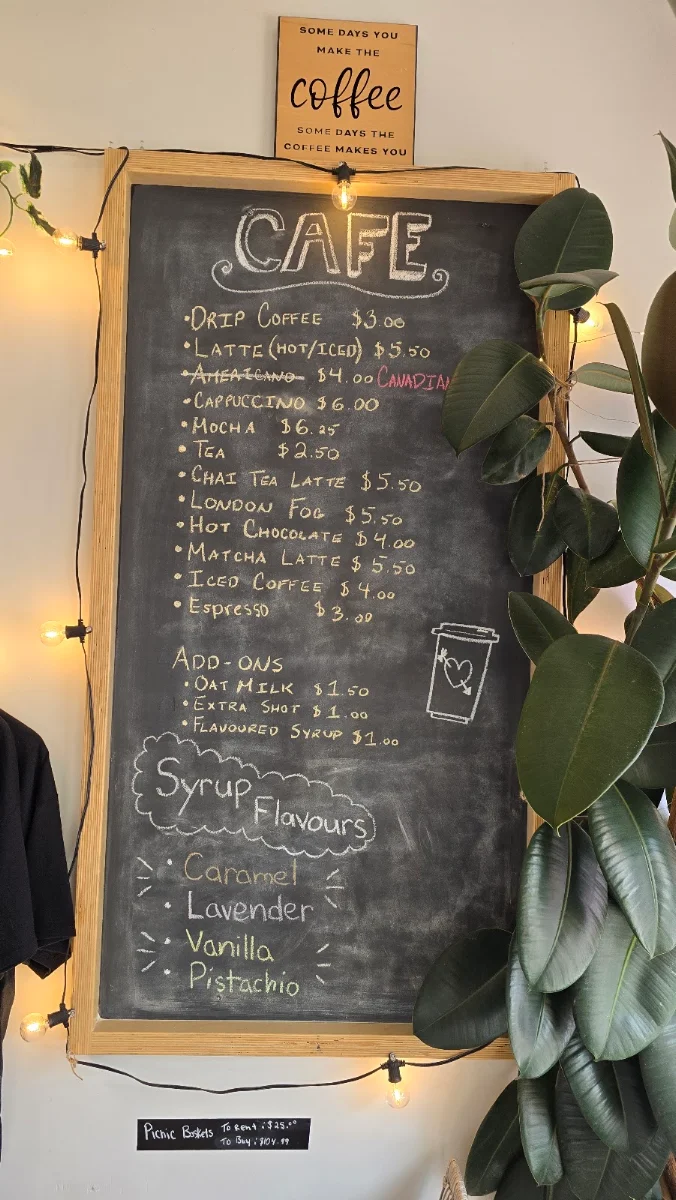 SOME DAYS YOU
MAKE THE
coffee
SOME DAYS THE
COFFEE MAKES YOU
CAFE
•DRIP COFFEE $3.00
•LATTE (HOT/ICED) $5.50
•AMERICANO $4.00 CANADIAN
•CAPPUCCINO $6.00
•MOCHA $6.25
•TEA $2.50
•CHAI TEA LATTE $5.50
•LONDON FOG $5.50
•HOT CHOCOLATE $4.00
•MATCHA LATTE $5.50
•ICED COFFEE $4.00
•Espresso $3.00
ADD-ONS
•OAT MILK $1.50
•EXTRA SHOT $1.00
•FLAVOURED SYRUP $1.00
Syrup
Flavours
• Caramel
• Lavender
• Vanilla
• Pistachio
Picnic Baskets To Rent : $25.00
To Buy : $104.99